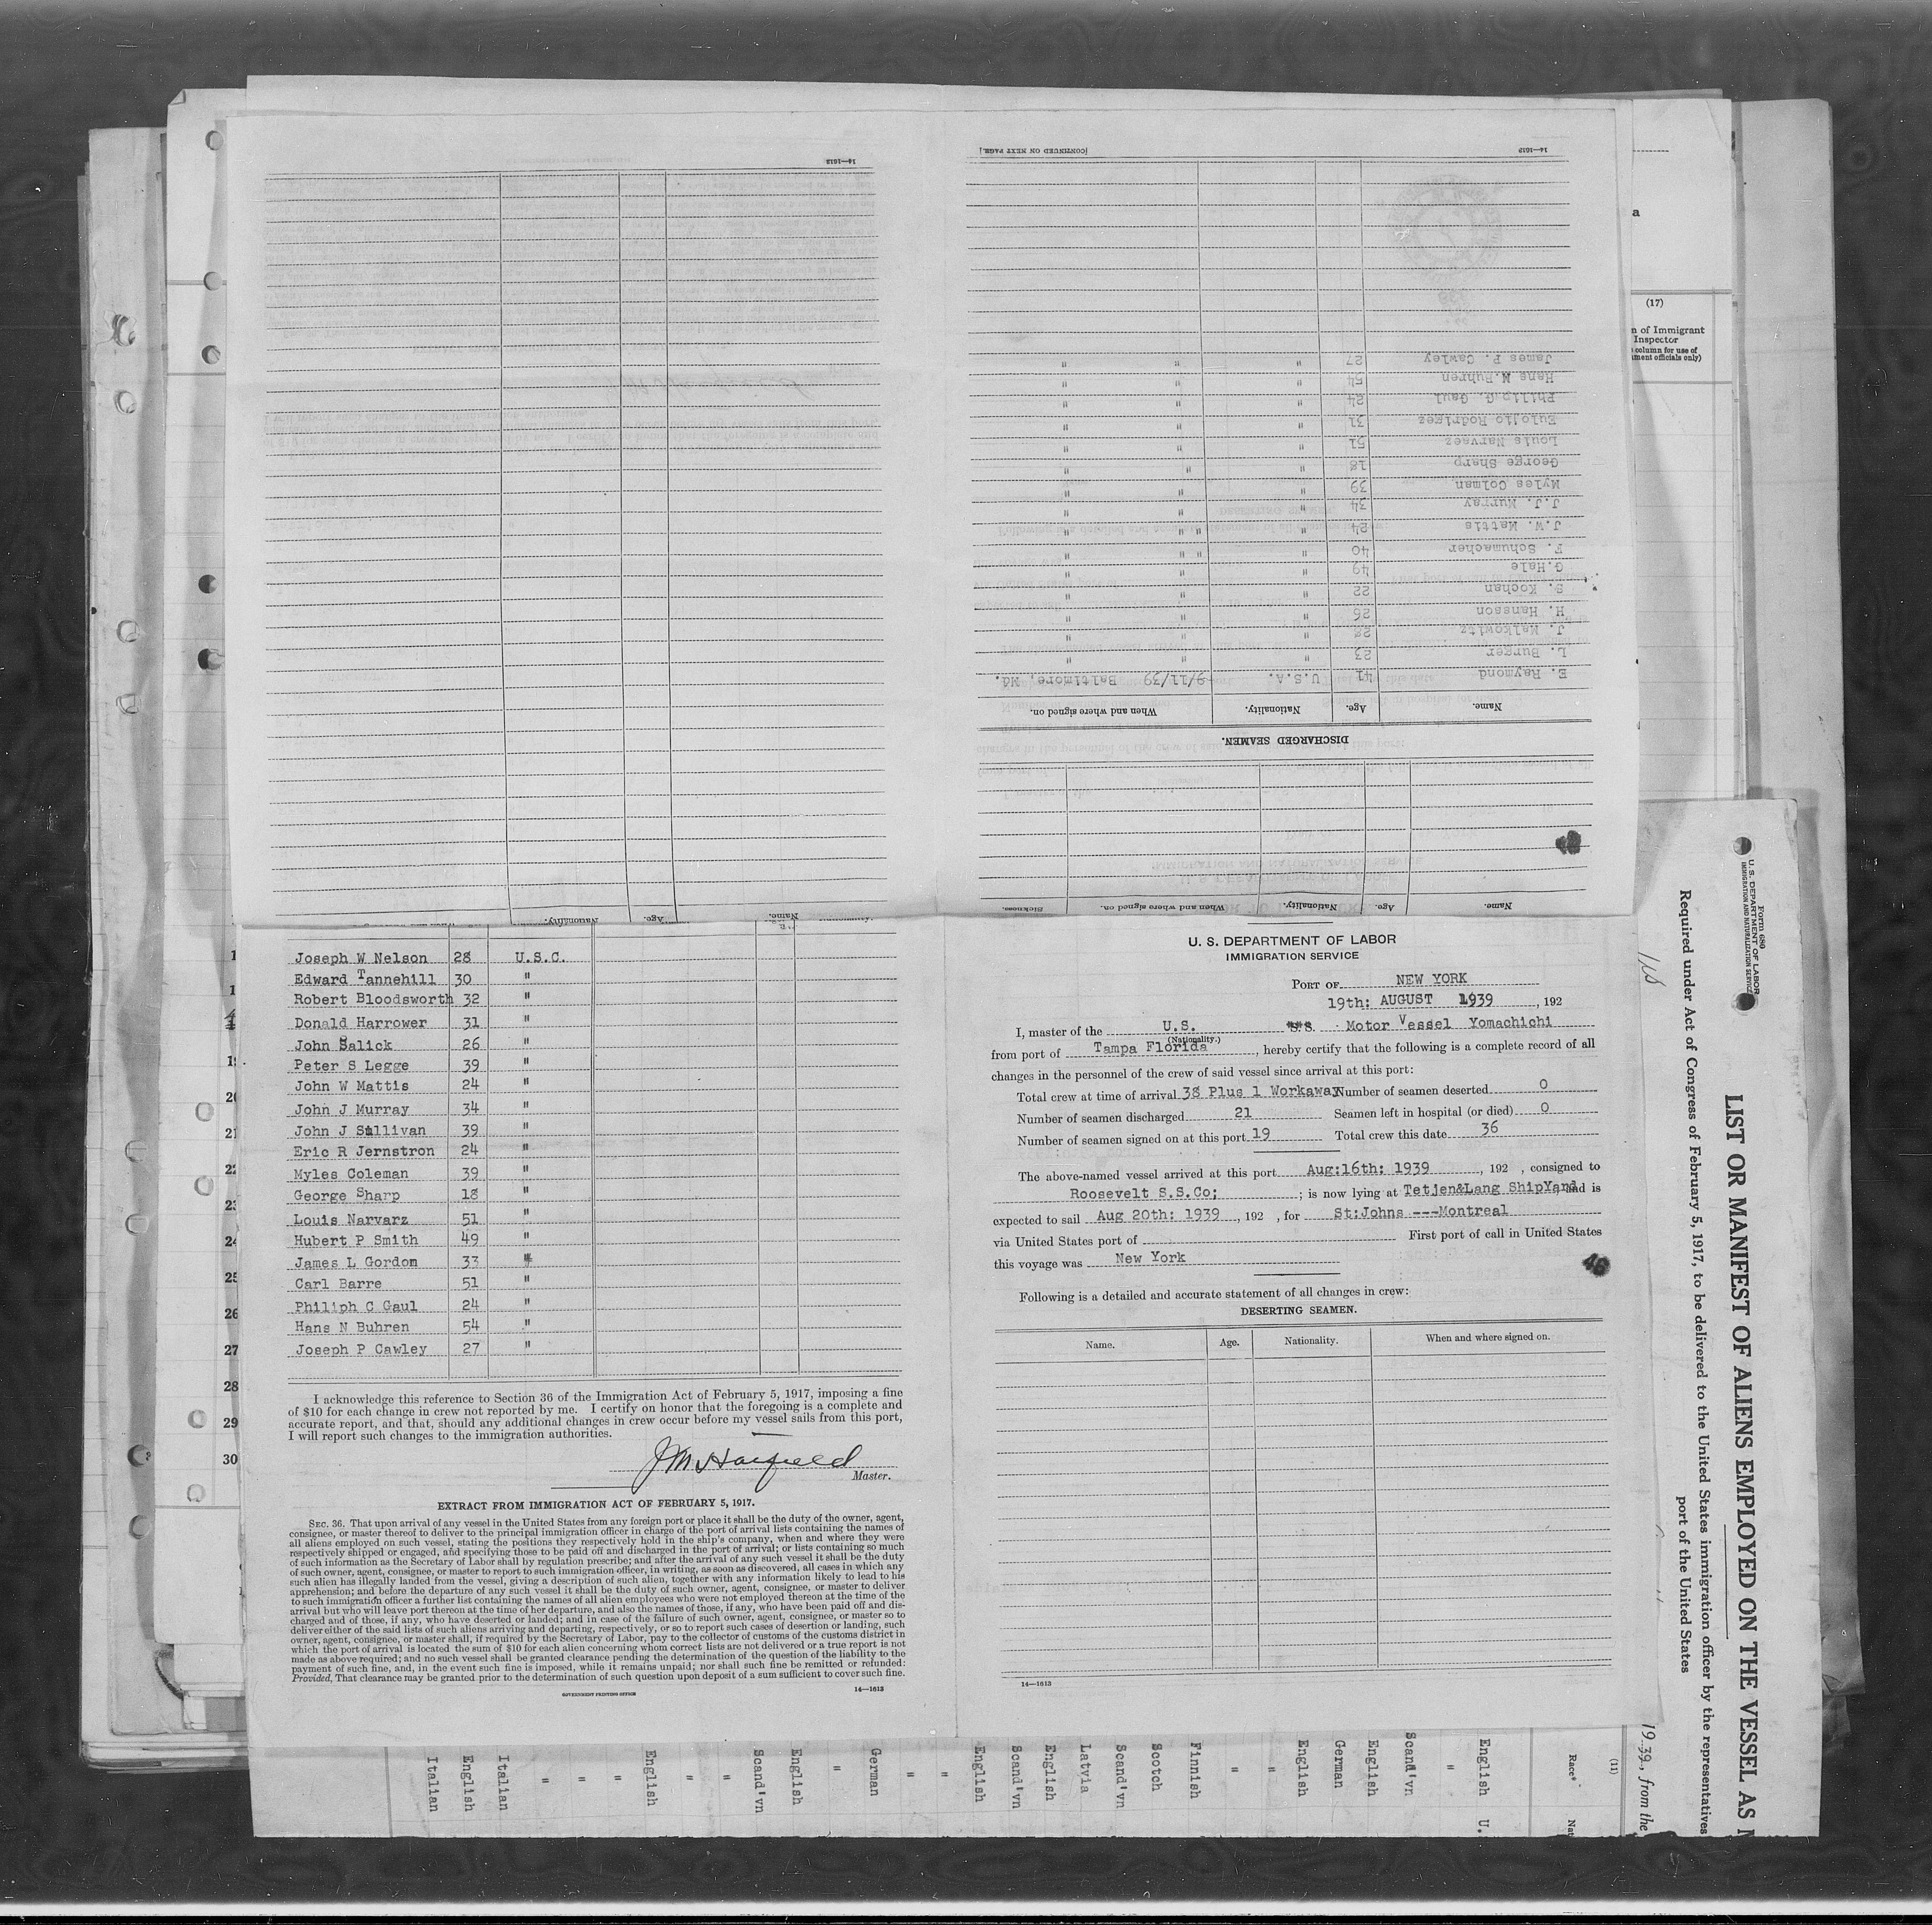 14—1613
Name. Age. Nationality.
[CONTINUED ON NEXT PAGE.]
14—1613
Name. Age. Nationality. When and where signed on. Sickness.
DISCHARGED SEAMEN.
Name. Age. Nationality. When and where signed on.
E. Raymond 41 U.S.A. 9/11/39 Baltimore, Md.
L. Burger 23 " " "
J. Malkowitz 28 " " "
H. Hansson 26 " " "
B. Kochan 22 " " "
G.Hale 49 " " "
F. Schumacher 40 " " " "
J.W. Mattis 24 " " " "
J.J. Murray 34 " " "
Myles Colman 39 " " "
George Sharp 18 " " "
Louis Narvaez 51 " " "
Eulojio Rodrigez 31 " " "
Philip G. Gaul 24 " " "
Hans N.Buhren 54 " " "
James P. Cawley 27 " " "
Joseph W Nelson 28 U.S.C.
Edward Tannehill 30 "
Robert Bloodsworth 32 "
Donald Harrower 31 "
John Salick 26 "
Peter S Legge 39 "
John W Mattis 24 "
John J Murray 34 "
John J Sullivan 39 "
Eric R Jernstron 24 "
Myles Coleman 39 "
George Sharp 18 "
Louis Narvarz 51 "
Hubert P Smith 49 "
James L Gordon 33 "
Carl Barre 51 "
Philiph C Gaul 24 "
Hans N Buhren 54 "
Joseph P Cawley 27 "
I acknowledge this reference to Section 36 of the Immigration Act of February 5, 1917, imposing a fine
of $10 for each change in crew not reported by me. I certify on honor that the foregoing is a complete and
accurate report, and that, should any additional changes in crew occur before my vessel sails from this port,
I will report such changes to the immigration authorities.
Master.
EXTRACT FROM IMMIGRATION ACT OF FEBRUARY 5, 1917.
SEC. 36. That upon arrival of any vessel in the United States from any foreign port or place it shall be the duty of the owner, agent,
consignee, or master thereof to deliver to the principal immigration officer in charge of the port of arrival lists containing the names of
all aliens employed on such vessel, stating the positions they respectively hold in the ship's company, when and where they were
respectively shipped or engaged, and specifying those to be paid off and discharged in the port of arrival; or lists containing so much
of such information as the Secretary of Labor shall by regulation prescribe; and after the arrival of any such vessel it shall be the duty
of such owner, agent, consignee, or master to report to such immigration officer, in writing, as soon as discovered, all cases in which any
such alien has illegally landed from the vessel, giving a description of such alien, together with any information likely to lead to his
apprehension; and before the departure of any such vessel it shall be the duty of such owner, agent, consignee, or master to deliver
to such immigration officer a further list containing the names of all alien employees who were not employed thereon at the time of the
arrival but who will leave port thereon at the time of her departure, and also the names of those, if any, who have been paid off and dis-
charged and of those, if any, who have deserted or landed; and in case of the failure of such owner, agent, consignee, or master so to
deliver either of the said lists of such aliens arriving and departing, respectively, or so to report such cases of desertion or landing, such
owner, agent, consignee, or master shall, if required by the Secretary of Labor, pay to the collector of customs of the customs district in
which the port of arrival is located the sum of $10 for each alien concerning whom correct lists are not delivered or a true report is not
made as above required; and no such vessel shall be granted clearance pending the determination of the question of the liability to the
payment of such fine, and, in the event such fine is imposed, while it remains unpaid; nor shall such fine be remitted or refunded:
Provided, That clearance may be granted prior to the determination of such question upon deposit of a sum sufficient to cover such fine.
GOVERNMENT PRINTING OFFICE
14—1613
U. S. DEPARTMENT OF LABOR
IMMIGRATION SERVICE
PORT OF NEW YORK
19th: AUGUST 1939 , 192
I, master of the U.S. S.S. Motor Vessel Yomachichi
(Nationality.)
from port of Tampa Florida , hereby certify that the following is a complete record of all
changes in the personnel of the crew of said vessel since arrival at this port:
Total crew at time of arrival 38 Plus 1 Workaway Number of seamen deserted 0
Number of seamen discharged 21 Seamen left in hospital (or died) 0
Number of seamen signed on at this port 19 Total crew this date 36
The above-named vessel arrived at this port Aug:16th: 1939 , 192 , consigned to
Roosevelt S.S.Co; ; is now lying at Tetjen&Lang ShipYard and is
expected to sail Aug 20th: 1939 , 192 , for St:Johns ---Montreal
via United States port of First port of call in United States
this voyage was New York
Following is a detailed and accurate statement of all changes in crew:
DESERTING SEAMEN.
Name. Age. Nationality. When and where signed on.
14—1613
20
21
22
23
24
25
26
27
28
29
30
a
(17)
n of Immigrant
Inspector
column for use of
ment officials only)
Form 680
U. S. DEPARTMENT OF LABOR
IMMIGRATION AND NATURALIZATION SERVICE
LIST OR MANIFEST OF ALIENS EMPLOYED ON THE VESSEL AS
Required under Act of Congress of February 5, 1917, to be delivered to the United States immigration officer by the representatives
port of the United States
19 39, from the
(11)
Race*
Nat
English U.
"
Scand'vn
English
German
English
"
"
Finnish
Scotch
Scand'vn
Latvia
English
Scand'vn
English
"
"
German
"
English
Scand'vn
"
"
English
"
"
"
Italian
English
Italian